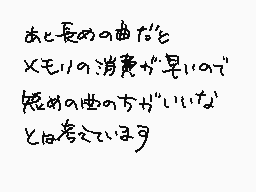 あと長めの曲だと
メモリの消費が早いので
短めの曲の方がいいな
とは考えています